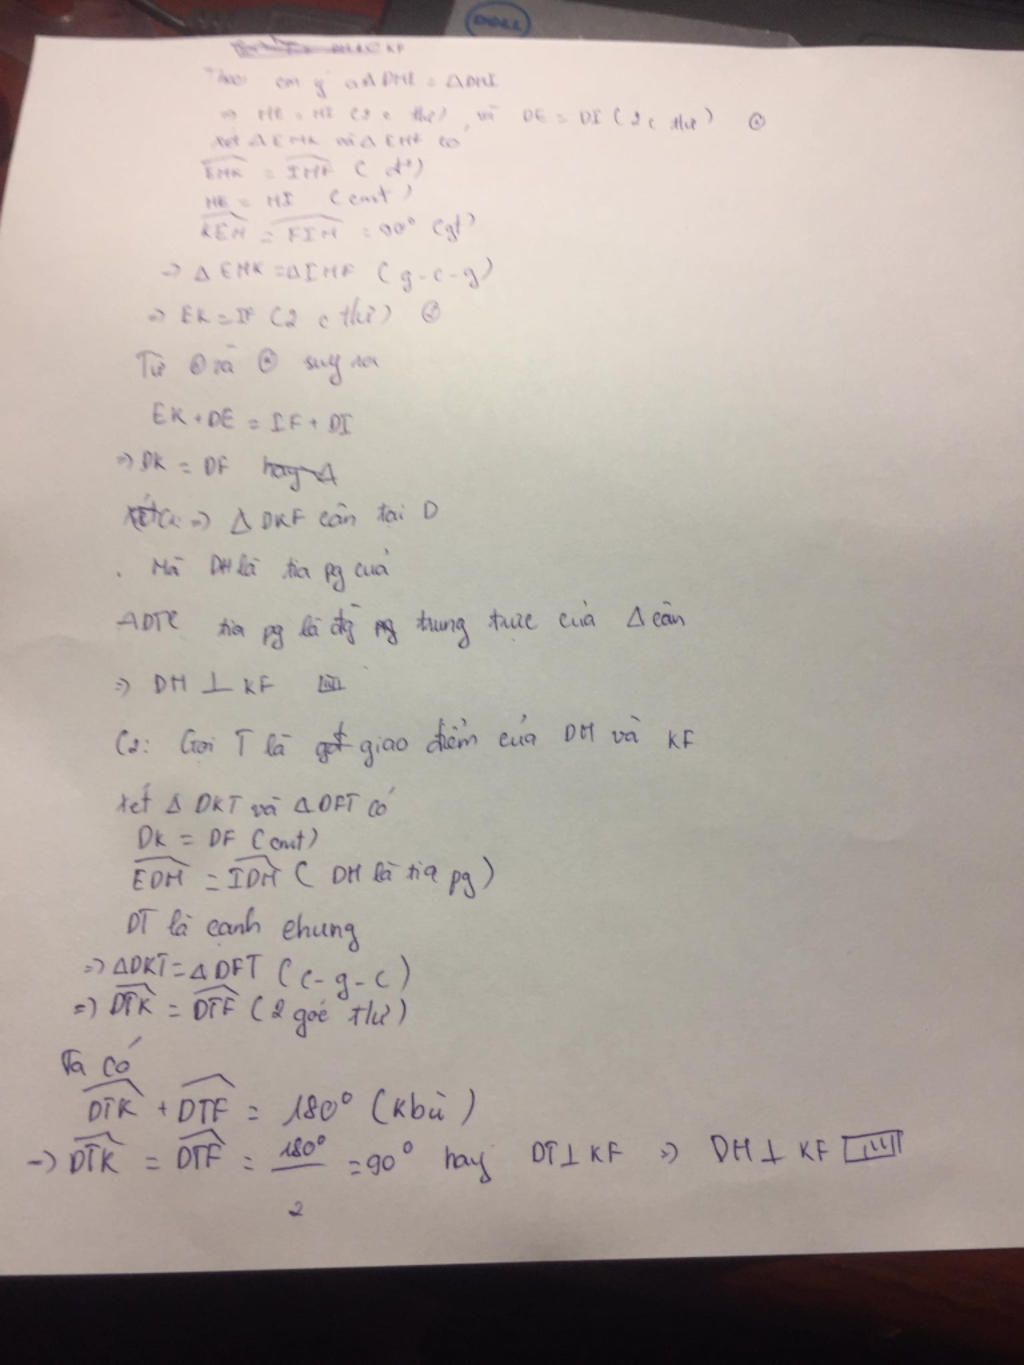 DELL
KF
Theo cm ý a ΔDME = ΔDMI
=> ME = MI (2 c thư), và DE = DI (2 c thư)
xét ΔEMK và ΔEMF có
EMK = IMF (đ²)
ME = MI (cmt)
KEM = FIM = 90° (gt)
=> ΔEMK = ΔIMF (g-c-g)
=> EK = IF (2 c thư)
Từ và suy ra
EK + DE = IF + DI
=> DK = DF
=> Δ DKF cân tại D
. Mà DM là tia pg của
tia pg là trung trực của Δ cân
=> DM ⊥ KF
C2: Gọi T là giao điểm của DM và KF
xét Δ DKT và Δ DFT có
DK = DF (cmt)
EDM = IDM ( DM là tia pg)
DT là cạnh chung
=> ΔDKT = ΔDFT (c-g-c)
=> DTK = DTF (2 góc thư)
Ta có
DTK + DTF = 180° (Kbù)
=> DTK = DTF = 180°/2 = 90° hay DT ⊥ KF => DM ⊥ KF